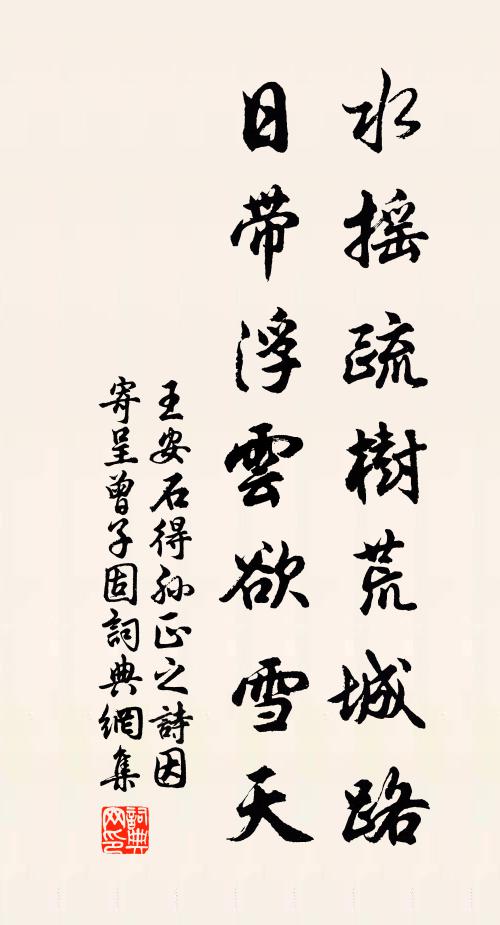 水摇疏樹荒城路
日带浮雲欲雪天
王安石得孙正之詩因
寄呈曾子固詞典網集
詞典
网印